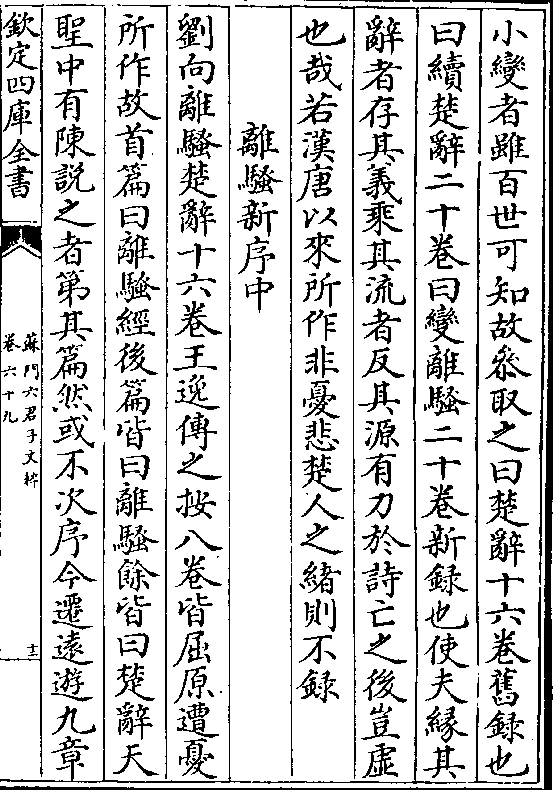 小變者雖百世可知故叅取之曰楚辭十六卷舊録也
曰續楚辭二十卷曰變離騷二十卷新録也使夫縁其
辭者存其義乘其流者反其源有力於詩亡之後豈虚
也哉若漢唐以來所作非憂悲楚人之緒則不録
離騷新序中
劉向離騷楚辭十六卷王逸傳之按八卷皆屈原遭憂
所作故首篇曰離騷經後篇皆曰離騷餘皆曰楚辭天
聖中有陳說之者第其篇然或不次序今遷遠遊九章
欽定四庫全書
蘇門六君子文粹
卷六十九
十二